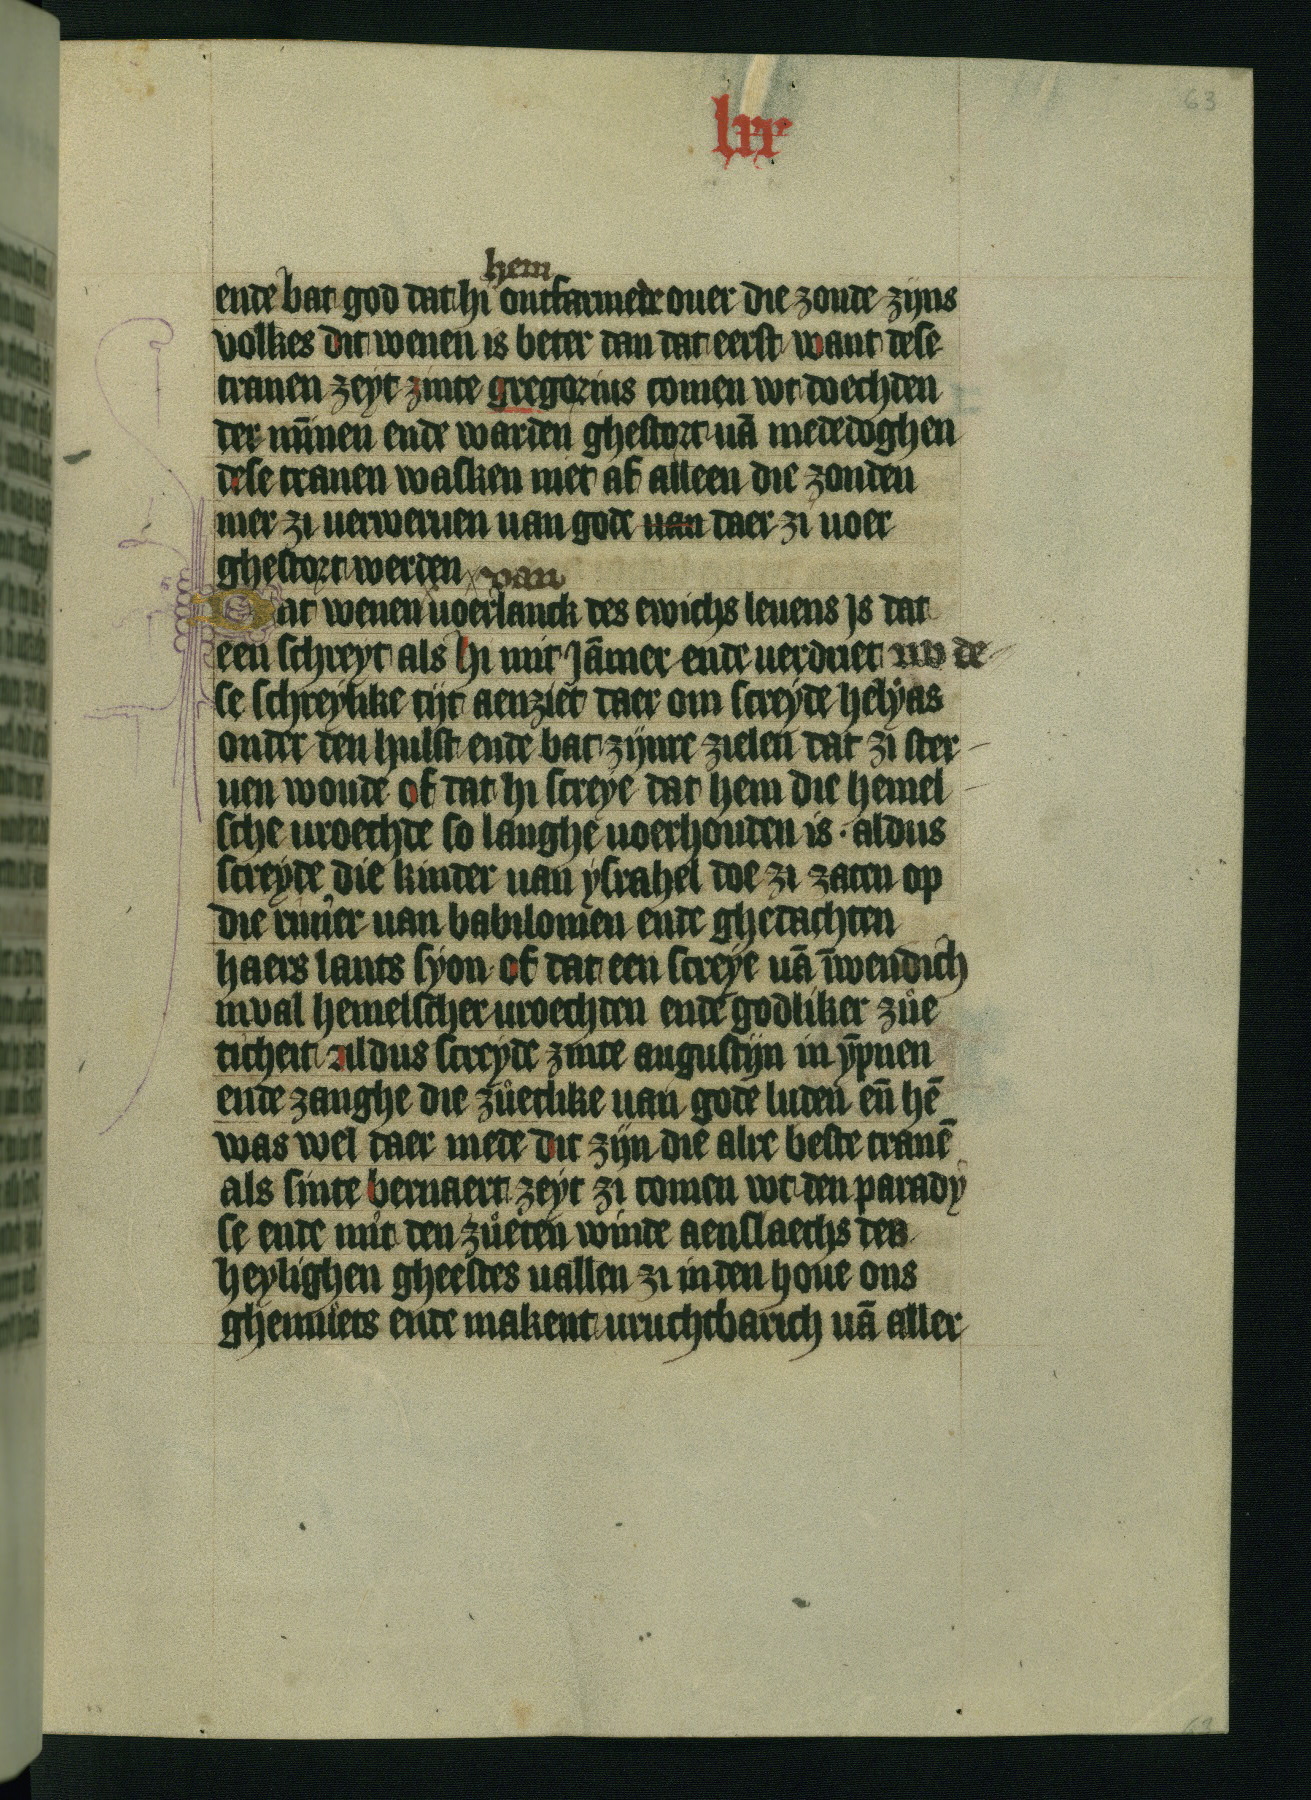 63
lxx
hem
ende bat god dat hi ontfarmede ouer die zonde zijns
volkes dit wenen is beter dan dat eerst want dese
tranen zeyt zinte gregorius comen wt doechden
der mīnen ende warden ghestort uā mededoghen
dese tranen wasken niet af alleen die zonden
mer zi uerweruen uan gode uan daer zi uoer
ghestort werden van
Dat wenen uoerlanck des ewichs leuens Js dat
een schreyt als hi mit Jāmer ende uerdriet nv de
se schreylike tijt aenziet daer om screyde helyas
onder den hulst ende bat zijnre zielen dat zi ster
uen woude of dat hi screye dat hem die hemel
sche uroechde so langhe uoerhouden is · aldus
screyde die kinder uan ysrahel doe zi zaten op
die riuier uan babilonien ende ghedachten
haers lants syon of dat een screye uā īwendich
inval hemelscher uroechden ende godliker zůe
ticheit aldus screyde zinte augustijn in ȳpnen
ende zanghe die zůetlike uan gode luden eñ hē
was wel daer mede dit zijn die alre beste tranē
als sinte bernaert zeyt zi comen wt den parady
se ende mit den zůeten winde aenslaechs des
heylighen gheestes uallen zi in den houe ons
ghemůets ende makent uruchtbarich uā aller
63